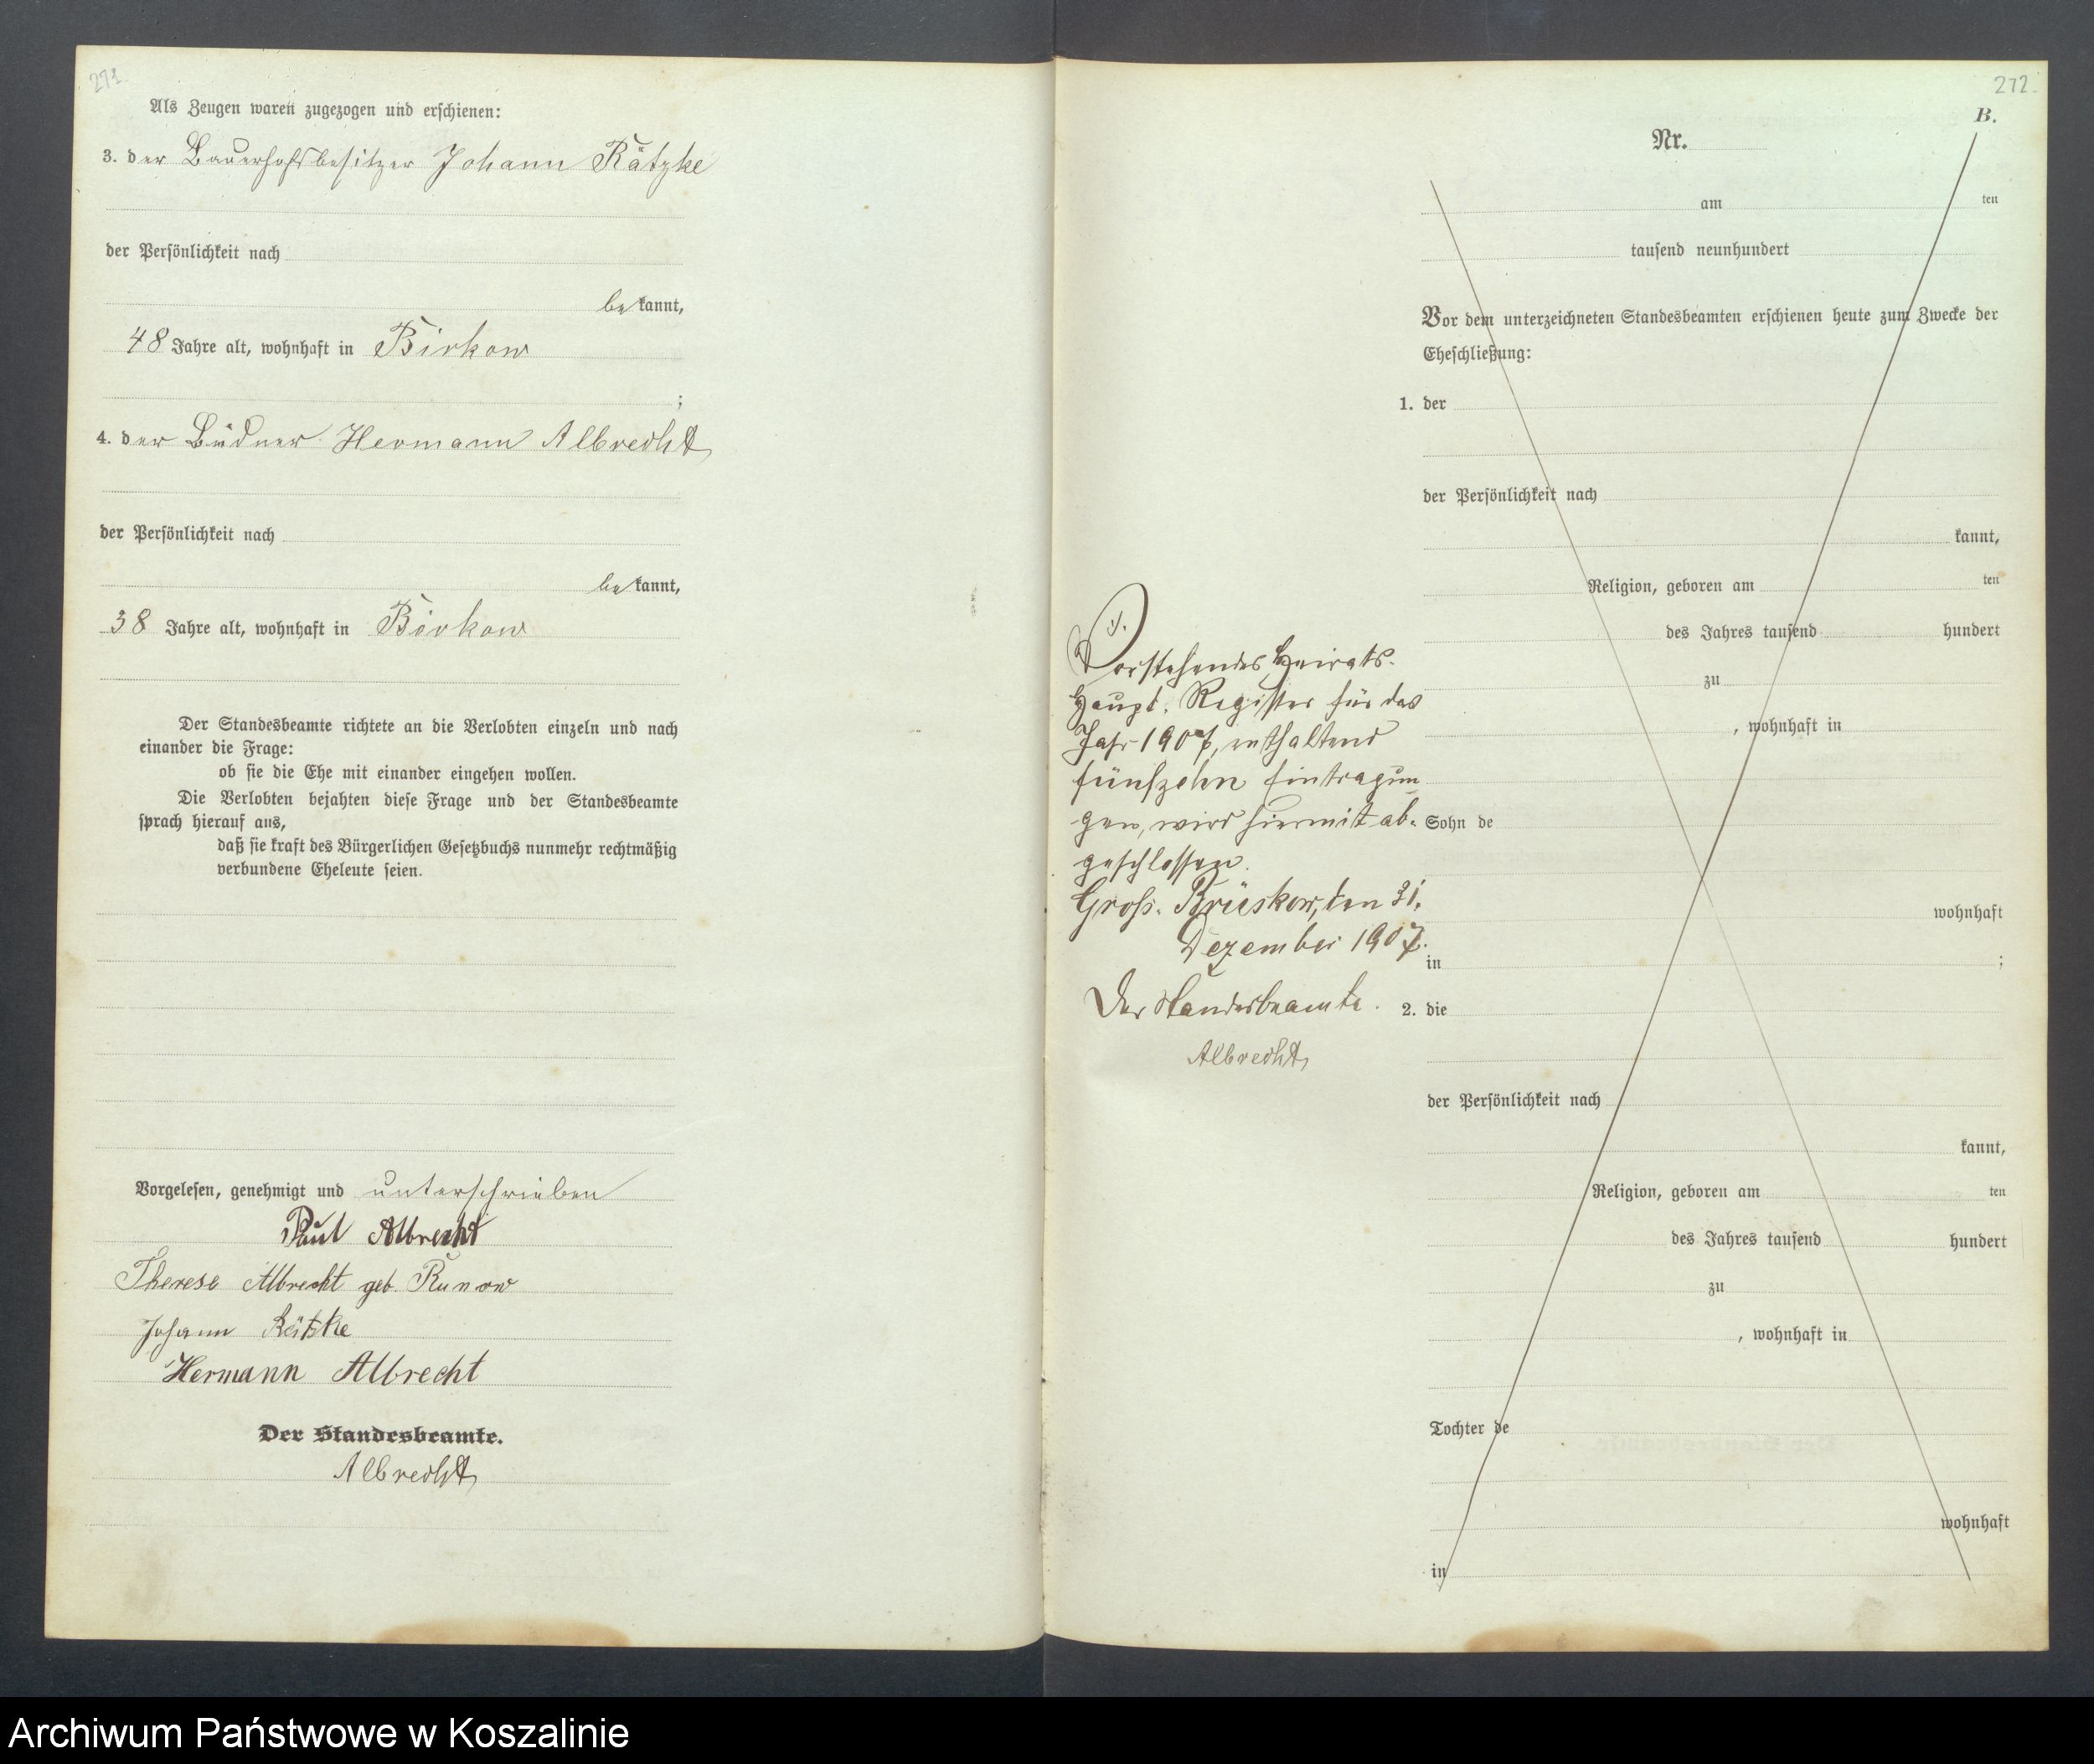 271.
Als Zeugen waren zugezogen und erschienen:
3. der Bauerhofsbesitzer Johann Rätzke
der Persönlichkeit nach
be kannt,
48 Jahre alt, wohnhaft in Birkow
;
4. der Büdner Hermann Albrecht
der Persönlichkeit nach
be kannt,
38 Jahre alt, wohnhaft in Birkow
Der Standesbeamte richtete an die Verlobten einzeln und nach
einander die Frage:
ob sie die Ehe mit einander eingehen wollen.
Die Verlobten bejahten diese Frage und der Standesbeamte
sprach hierauf aus,
daß sie kraft des Bürgerlichen Gesetzbuchs nunmehr rechtmäßig
verbundene Eheleute seien.
Vorgelesen, genehmigt und unterschrieben
Paul Albrecht
Therese Albrecht geb. Runow
Johann Rätzke
Hermann Albrecht
Der Standesbeamte.
Albrecht
272.
B.
Nr.
am ten
tausend neunhundert
Vor dem unterzeichneten Standesbeamten erschienen heute zum Zwecke der
Eheschließung:
1. der
der Persönlichkeit nach
kannt,
Religion, geboren am ten
des Jahres tausend hundert
zu
, wohnhaft in
Sohn de
wohnhaft
in ;
2. die
der Persönlichkeit nach
kannt,
Religion, geboren am ten
des Jahres tausend hundert
zu
, wohnhaft in
Tochter de
wohnhaft
in
Vorstehendes Heirats-
Haupt-Register für das
Jahr 1907, enthaltend
fünfzehn Eintragun
gen, wird hiermit ab-
geschlossen.
Groß-Brüskow, den 31.
Dezember 1907.
Der Standesbeamte.
Albrecht
Archiwum Państwowe w Koszalinie